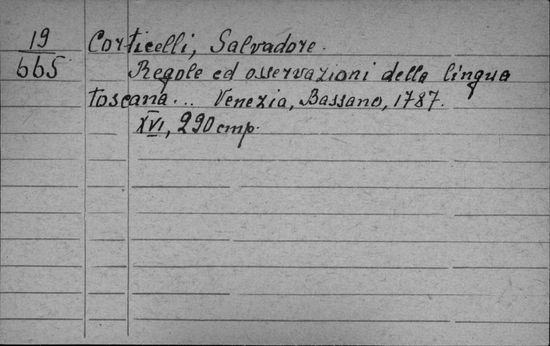 19 Corticelli, Salvadore.
665 Regole ed osservazioni della lingua
toscana... Venezia, Bassano, 1787.
XVI, 290 стр.